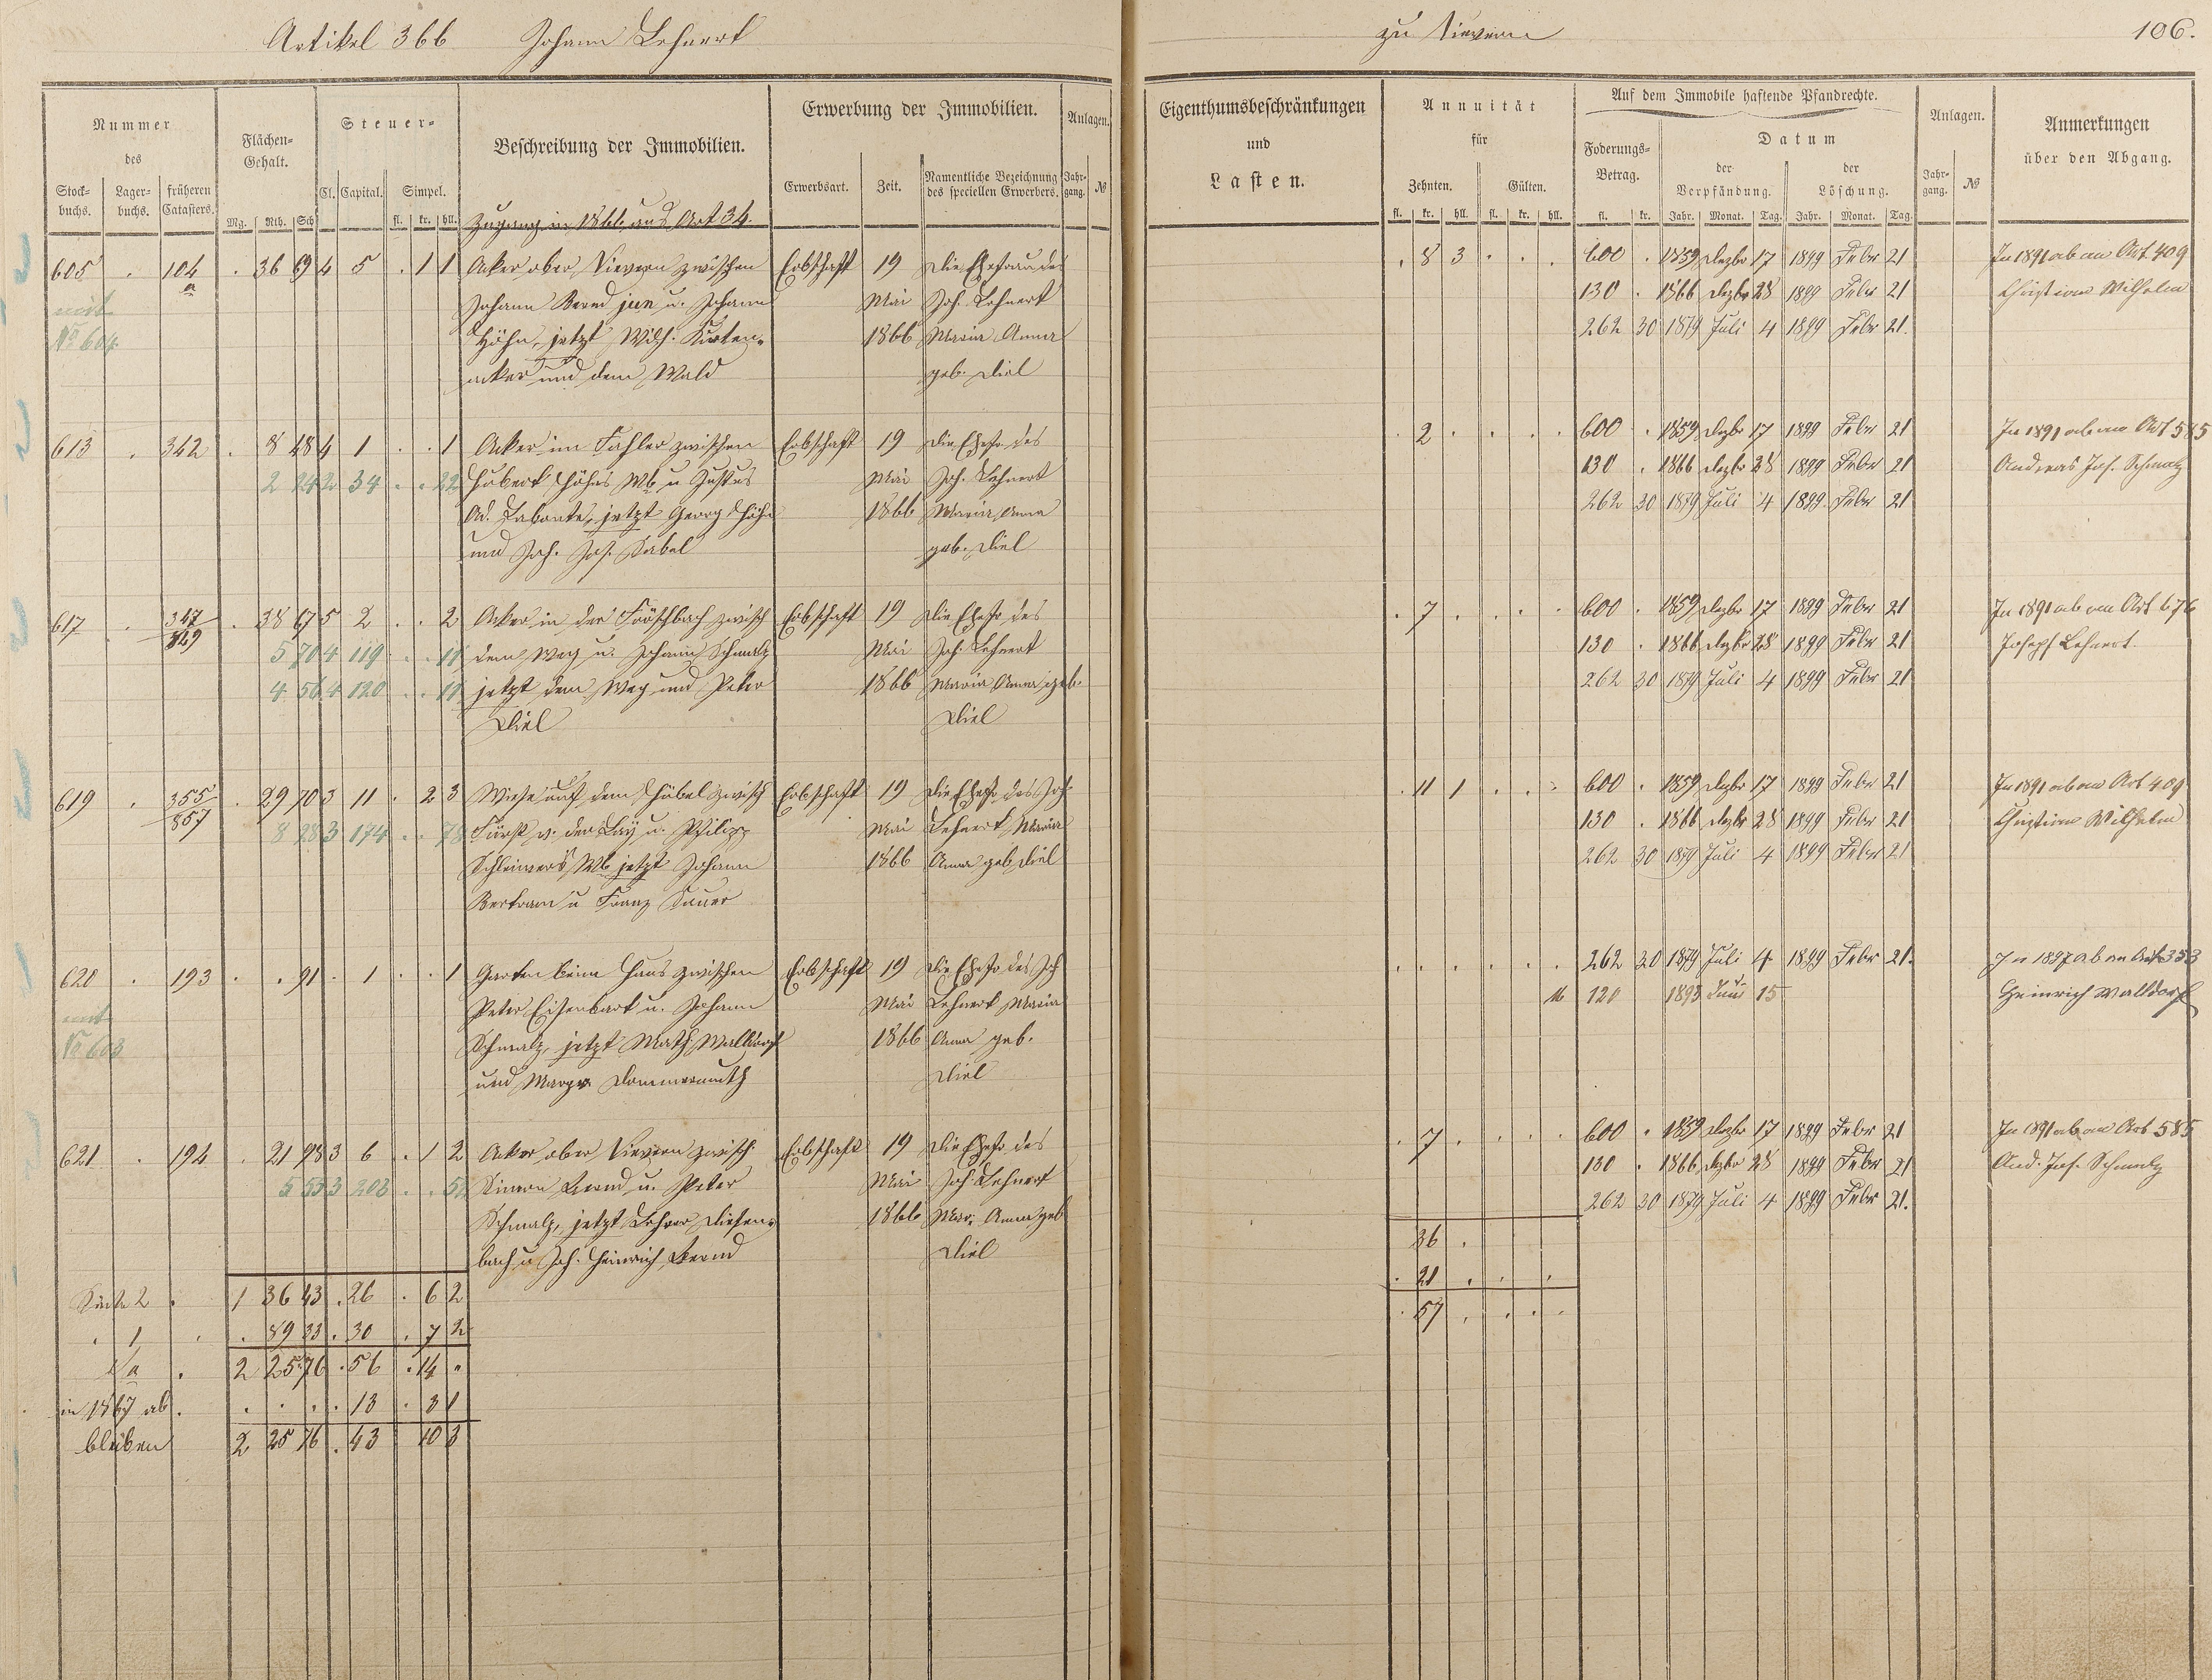 Artikel 366 Johann Lehnert
zu Fievern
106.
Nummer des
Stockbuchs. Lagerbuchs. früheren Catasters.
Flächen-Gehalt.
Mg. Rth. Sch
Steuer-
Cl. Capital. Simpel.
fl. kr. hll.
Beschreibung der Immobilien.
Erwerbung der Immobilien.
Erwerbsart. Zeit. Namentliche Bezeichnung des speciellen Erwerbers.
Anlagen.
Jahrgang. №
Eigenthumsbeschränkungen
und
Lasten.
Annuität
für
Zehnten. Gülten.
fl. kr. hll. fl. kr. hll.
Auf dem Immobile haftende Pfandrechte.
Foderungs-Betrag.
fl. kr.
Datum
der Verpfändung. der Löschung.
Jahr. Monat. Tag. Jahr. Monat. Tag.
Anlagen.
Jahrgang. №
Anmerkungen
über den Abgang.
Zugang in 1866 aus Art 34.
605 . 104 . 36 69 4 5 . 1 1 Acker ober Fievern zwischen Erbschaft 19 die Ehefrau des
mit a Johann Bernd jun u. Johann Mai Joh. Lehnert
№ 604 Höhn, jetzt Wilh. Kurten- 1866 Maria Anna
acker und dem Wald geb. Diel
. 8 3 . . . 600 . 1859 Dezbr 17 1899 Febr 21 In 1891 ab an Art 409
130 . 1866 Dezbr 28 1899 Febr 21 Christian Wilhelm
262 30 1879 Juli 4 1899 Febr 21.
613 . 342 . 8 48 4 1 . . 1 Acker im Fahler zwischen Erbschaft 19 die Ehefr des
2 24 2 34 . . 22 Hubert Höhns Wb u Justus Mai Joh. Lehnert
Ad. Labonte, jetzt Georg Höhn 1866 Maria Anna
und Joh. Jos. Sabel geb. Diel
. 2 . . . . 600 . 1859 Dezbr 17 1899 Febr 21 In 1891 ab an Art 585
130 . 1866 Dezbr 28 1899 Febr 21 Andreas Jos. Schmalz
262 30 1879 Juli 4 1899 Febr 21
617 . 347/849 . 38 67 5 2 . . 2 Acker in der Fröschbach zwisch Erbschaft 19 die Ehefr des
5 70 4 119 . . 11 dem Weg u. Johann Schmalz Mai Joh. Lehnert
4 56 4 120 . . 11 jetzt dem Weg und Peter 1866 Maria Anna geb.
Diel Diel
. 7 . . . . 600 . 1859 Dezbr 17 1899 Febr 21 In 1891 ab an Art 676
130 . 1866 Dezbr 28 1899 Febr 21 Joseph Lehnert.
262 30 1879 Juli 4 1899 Febr 21
619 . 355/857 . 29 70 3 11 . 2 3 Wiese auf dem Hübel zwisch Erbschaft 19 die Ehefr des Joh.
8 28 3 174 . . 78 Fürst v. der Lay u. Philipp Mai Lehnert, Maria
Wb jetzt Johann 1866 Anna geb Diel
Bertram u Franz Sauer
. 11 1 . . . 600 . 1859 Dezbr 17 1899 Febr 21 In 1891 ab an Art 409
130 . 1866 Dezbr 28 1899 Febr 21 Christian Wilhelm
262 30 1879 Juli 4 1899 Febr 21
620 . 193 . . 91 . 1 . . 1 Garten beim Haus zwischen Erbschaft 19 die Ehefr des Joh
mit Peter Eisenbart u. Johann Mai Lehnert Maria
№ 603 Schmalz, jetzt Math. Walldorf 1866 Anna geb.
und Margr. Dommermuth Diel
. . . . . . 262 30 1879 Juli 4 1899 Febr 21. In 1897 ab an Art 353
M 120 1893 Juni 15 Heinrich Walldorf
621 . 194 . 21 98 3 6 . 1 2 Acker ober Fievern zwisch. Erbschaft 19 die Ehefr des
5 55 3 203 . . 52 Simon Bernd u. Peter Mai Joh. Lehnert
Schmalz, jetzt Lehrer Diefen- 1866 Mar. Anna geb
bach u Joh. Heinrich Bernd Diel
. 7 . . . . 600 . 1859 Dezbr 17 1899 Febr 21 In 1891 ab an Art 585
130 . 1866 Dezbr 28 1899 Febr 21 And. Jos. Schmalz
262 30 1879 Juli 4 1899 Febr 21.
36 .
. 21 . . .
. 57 . . .
Seite 2 . 1 36 43 . 26 . 6 2
. 1 . . 89 33 . 30 . 7 2
Sa . 2 25 76 . 56 . 14 .
in 1867 ab . . . . . 13 . 3 1
bleiben 2 25 76 . 43 10 3